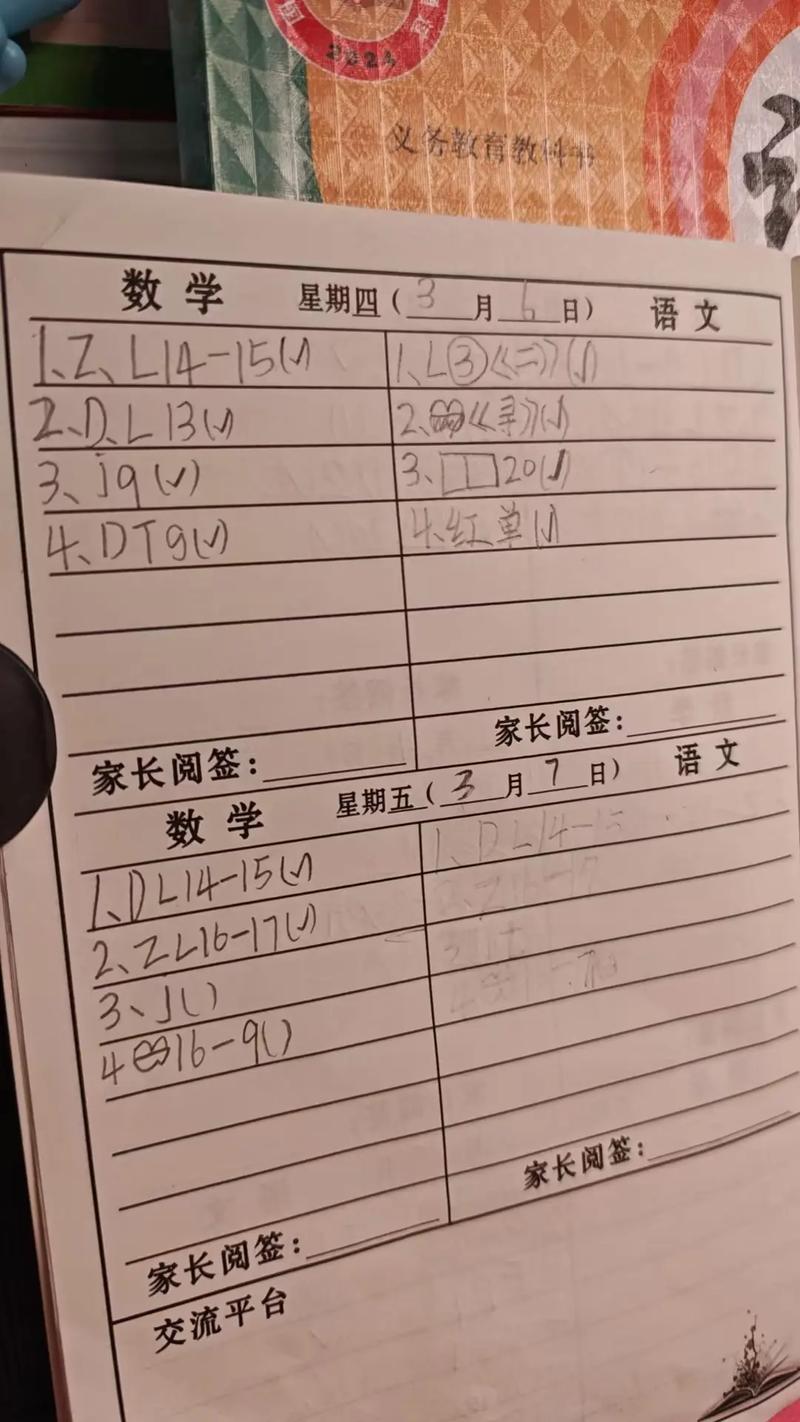 2024
义务教育教科书
数学 星期四(3月6日) 语文
1、Z、L14-15(√)
2、D、L13(√)
3、j9(√)
4、DT9(√)
1、L③《二》(√)
2、《寻》(√)
3、20(√)
4、红单(√)
家长阅签:
家长阅签:
数学 星期五(3月7日) 语文
1、DL14-15(√)
2、ZL16-17(√)
3、j()
4 16-9()
1、DL14-15
家长阅签:
家长阅签:
交流平台